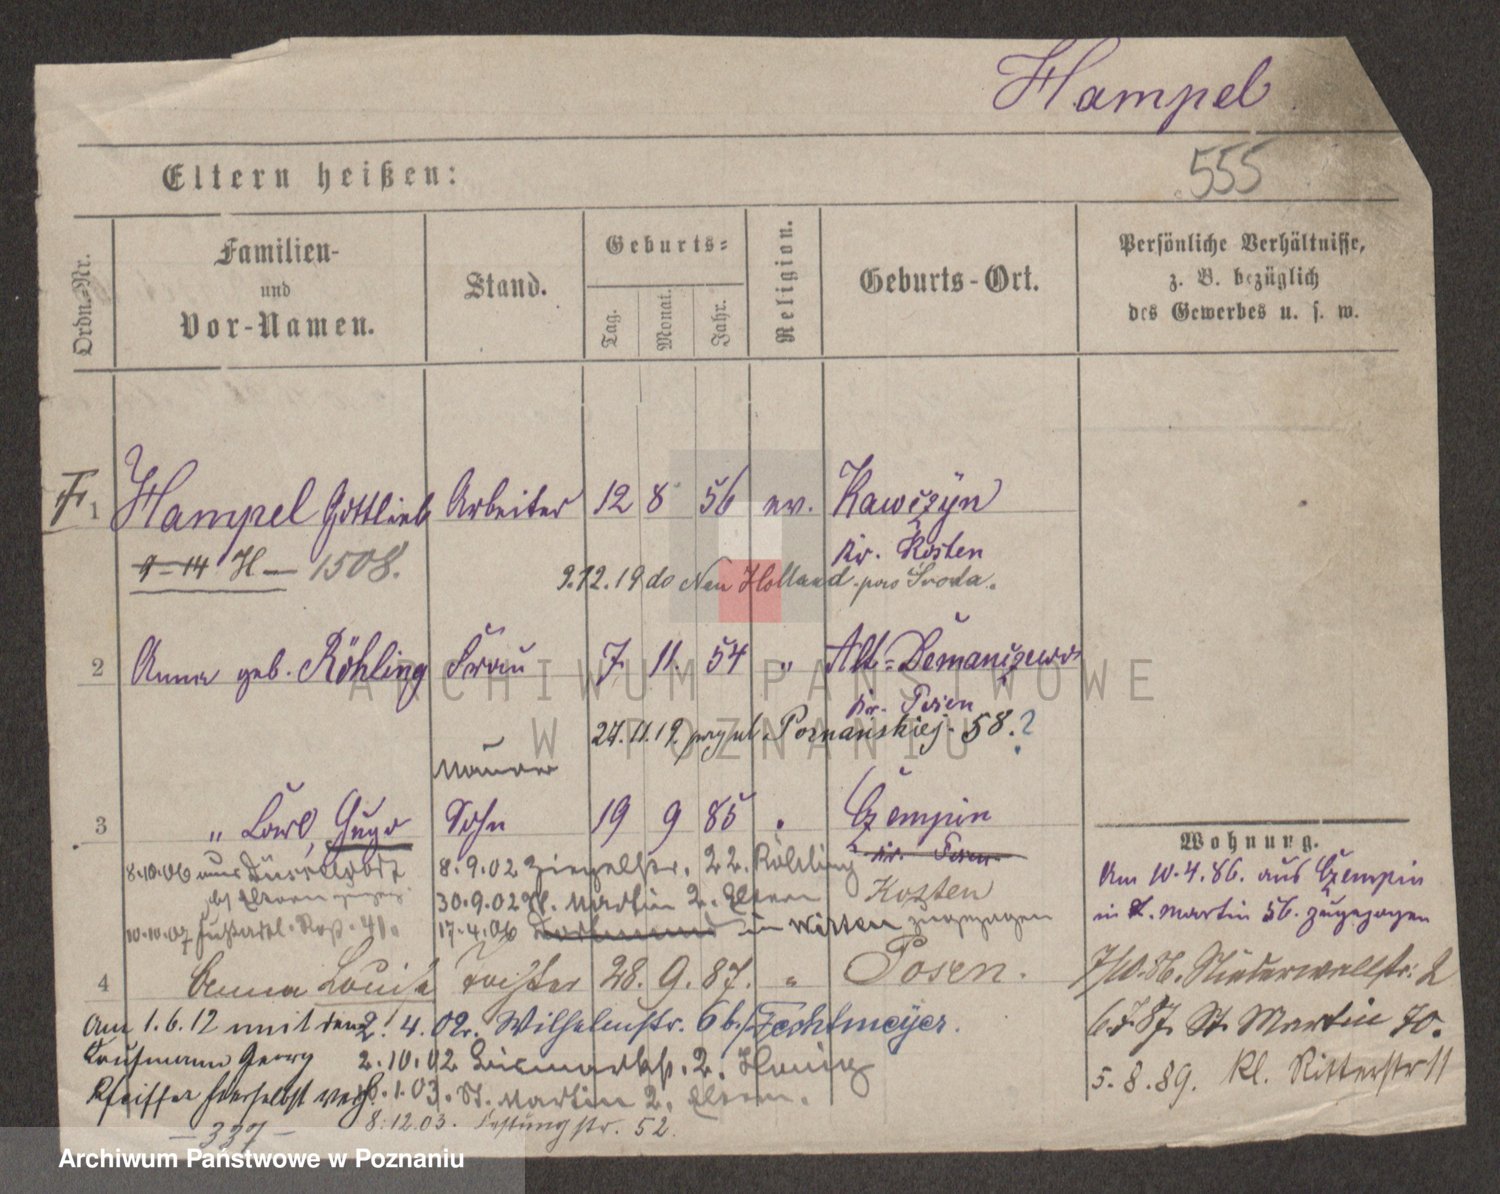 Hampel
555
Eltern heißen:
Ordn.-Nr.
Familien-
und
Vor-Namen.
Stand.
Geburts-
Tag.
Monat.
Jahr.
Religion.
Geburts-Ort.
Persönliche Verhältnisse,
z. B. bezüglich
des Gewerbes u. s. w.
1 Hampel Gottlieb Arbeiter 12 8 56 ev. Kawczyn
Kr. Kosten
9-14 H — 1508.
9.12.19 do Neu Holland pow Środa.
2 Anna geb. Röhling Frau 7 11. 54 " Alt-Demanczewo
Kr. Posen
24.11.19 Poznańskiej 58.?
Maurer
3 " Carl, Hugo Sohn 19 9 85 " Czempin
Kr. Posen
Kosten
8.10.06 aus Düsseldorf
8.9.02 Ziegelstr. 22. Röhling
30.9.02 St. Martin 2. Eltern
10.10.07
17.4.06 Dortmund in Wirten zugezogen
4 Anna Louise Tochter 28. 9. 87. " Posen.
Am 1.6.12 mit dem
Kaufmann Georg
Pfeiffer hierselbst verh.
— 337 —
2. 4. 02. Wilhelmstr. 6b. Techtmeyer.
2.10.02 Bismarckstr. 2. Honig
8.1.03. St. Martin 2. Eltern.
8.12.03. Festungstr. 52.
Wohnung.
Am 10.4.86. aus Czempin
in St. Martin 56. zugezogen
7/10.86. Niederwallstr. 2
6.7.87. St. Martin 70.
5.8.89. Kl. Ritterstr 11
ARCHIWUM PAŃSTWOWE
W POZNANIU
Archiwum Państwowe w Poznaniu